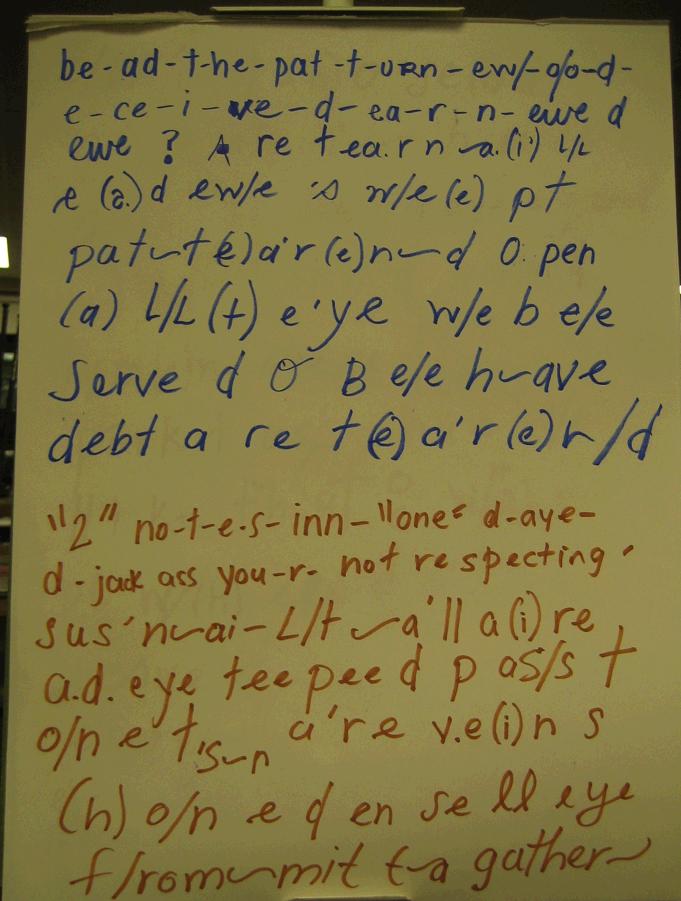 be-ad-t-he-pat-t-urn-ew/-o/o-d-
e-ce-i-ve-d-ea-r-n-ewe d
ewe ? A re tea.r n a.(i) L/L
e (a.)d ew/e 's w/e(e) pt
pat~t(e)a'r(e)n~d O pen
(a) L/L(t) e'ye w/e b e/e
Serve d O B e/e h~ave
debt a re t(e)a'r(e)n/d
"2" no-t-e-s-inn-"one" d-aye-
d-jack ass you-r- not re specting'
sus'n~ai-L/t~a'll a(i)re
a.d. eye tee pee d p as/s t
o/n e t's~n a're v.e(i)n s
(h) o/n e d en se ll eye
f/rom~mit t~a gather~